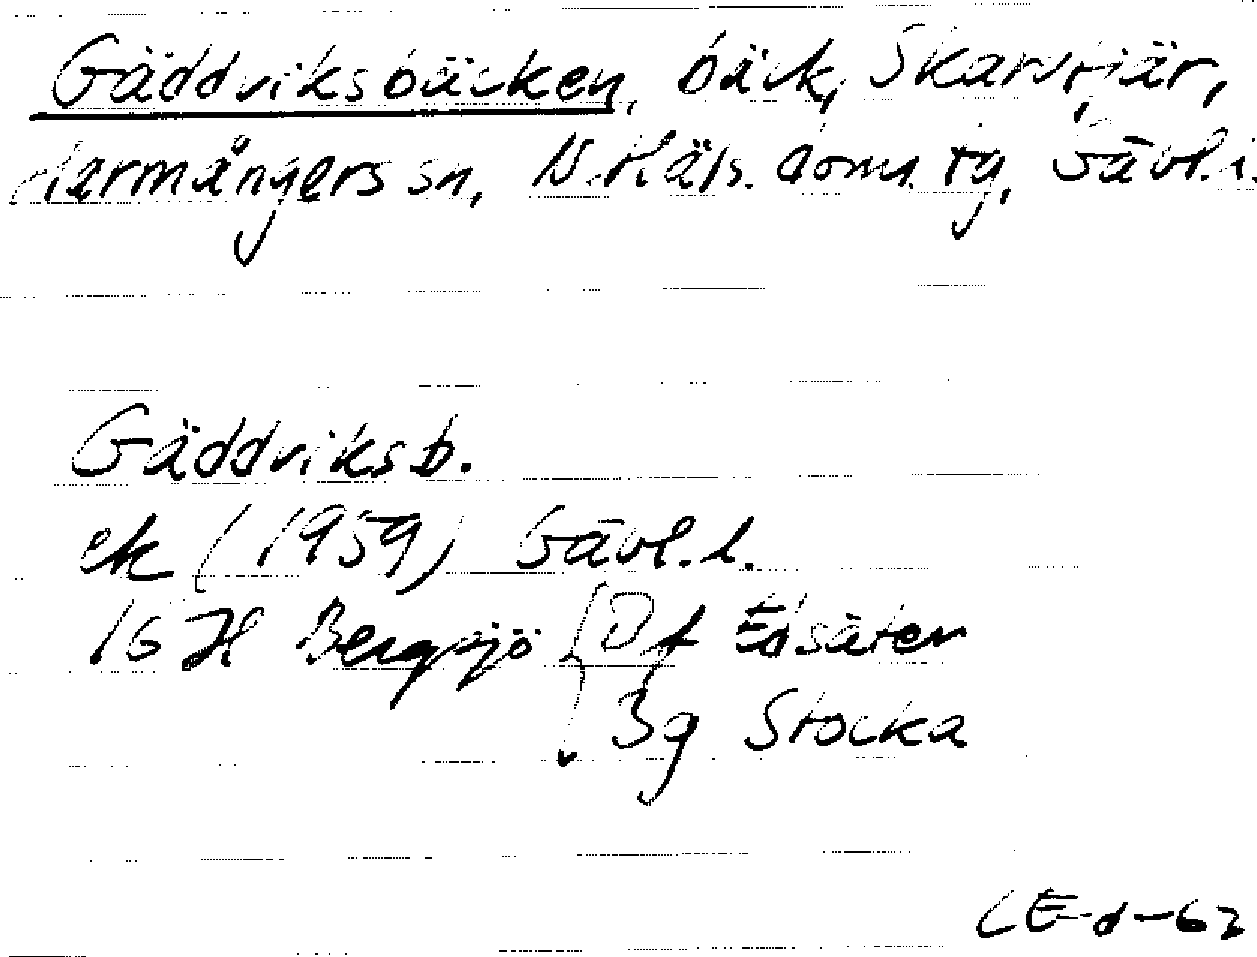 Gäddviksbäcken, bäck, Skarvtjär,
Harmångers sn, N. Häls. doms. tg, Gävl. l.
Gäddviksb.
ek (1959) Gävl. l.
16 H Bergsjö 0f Edsäter
3g Stocka
CE-d-62